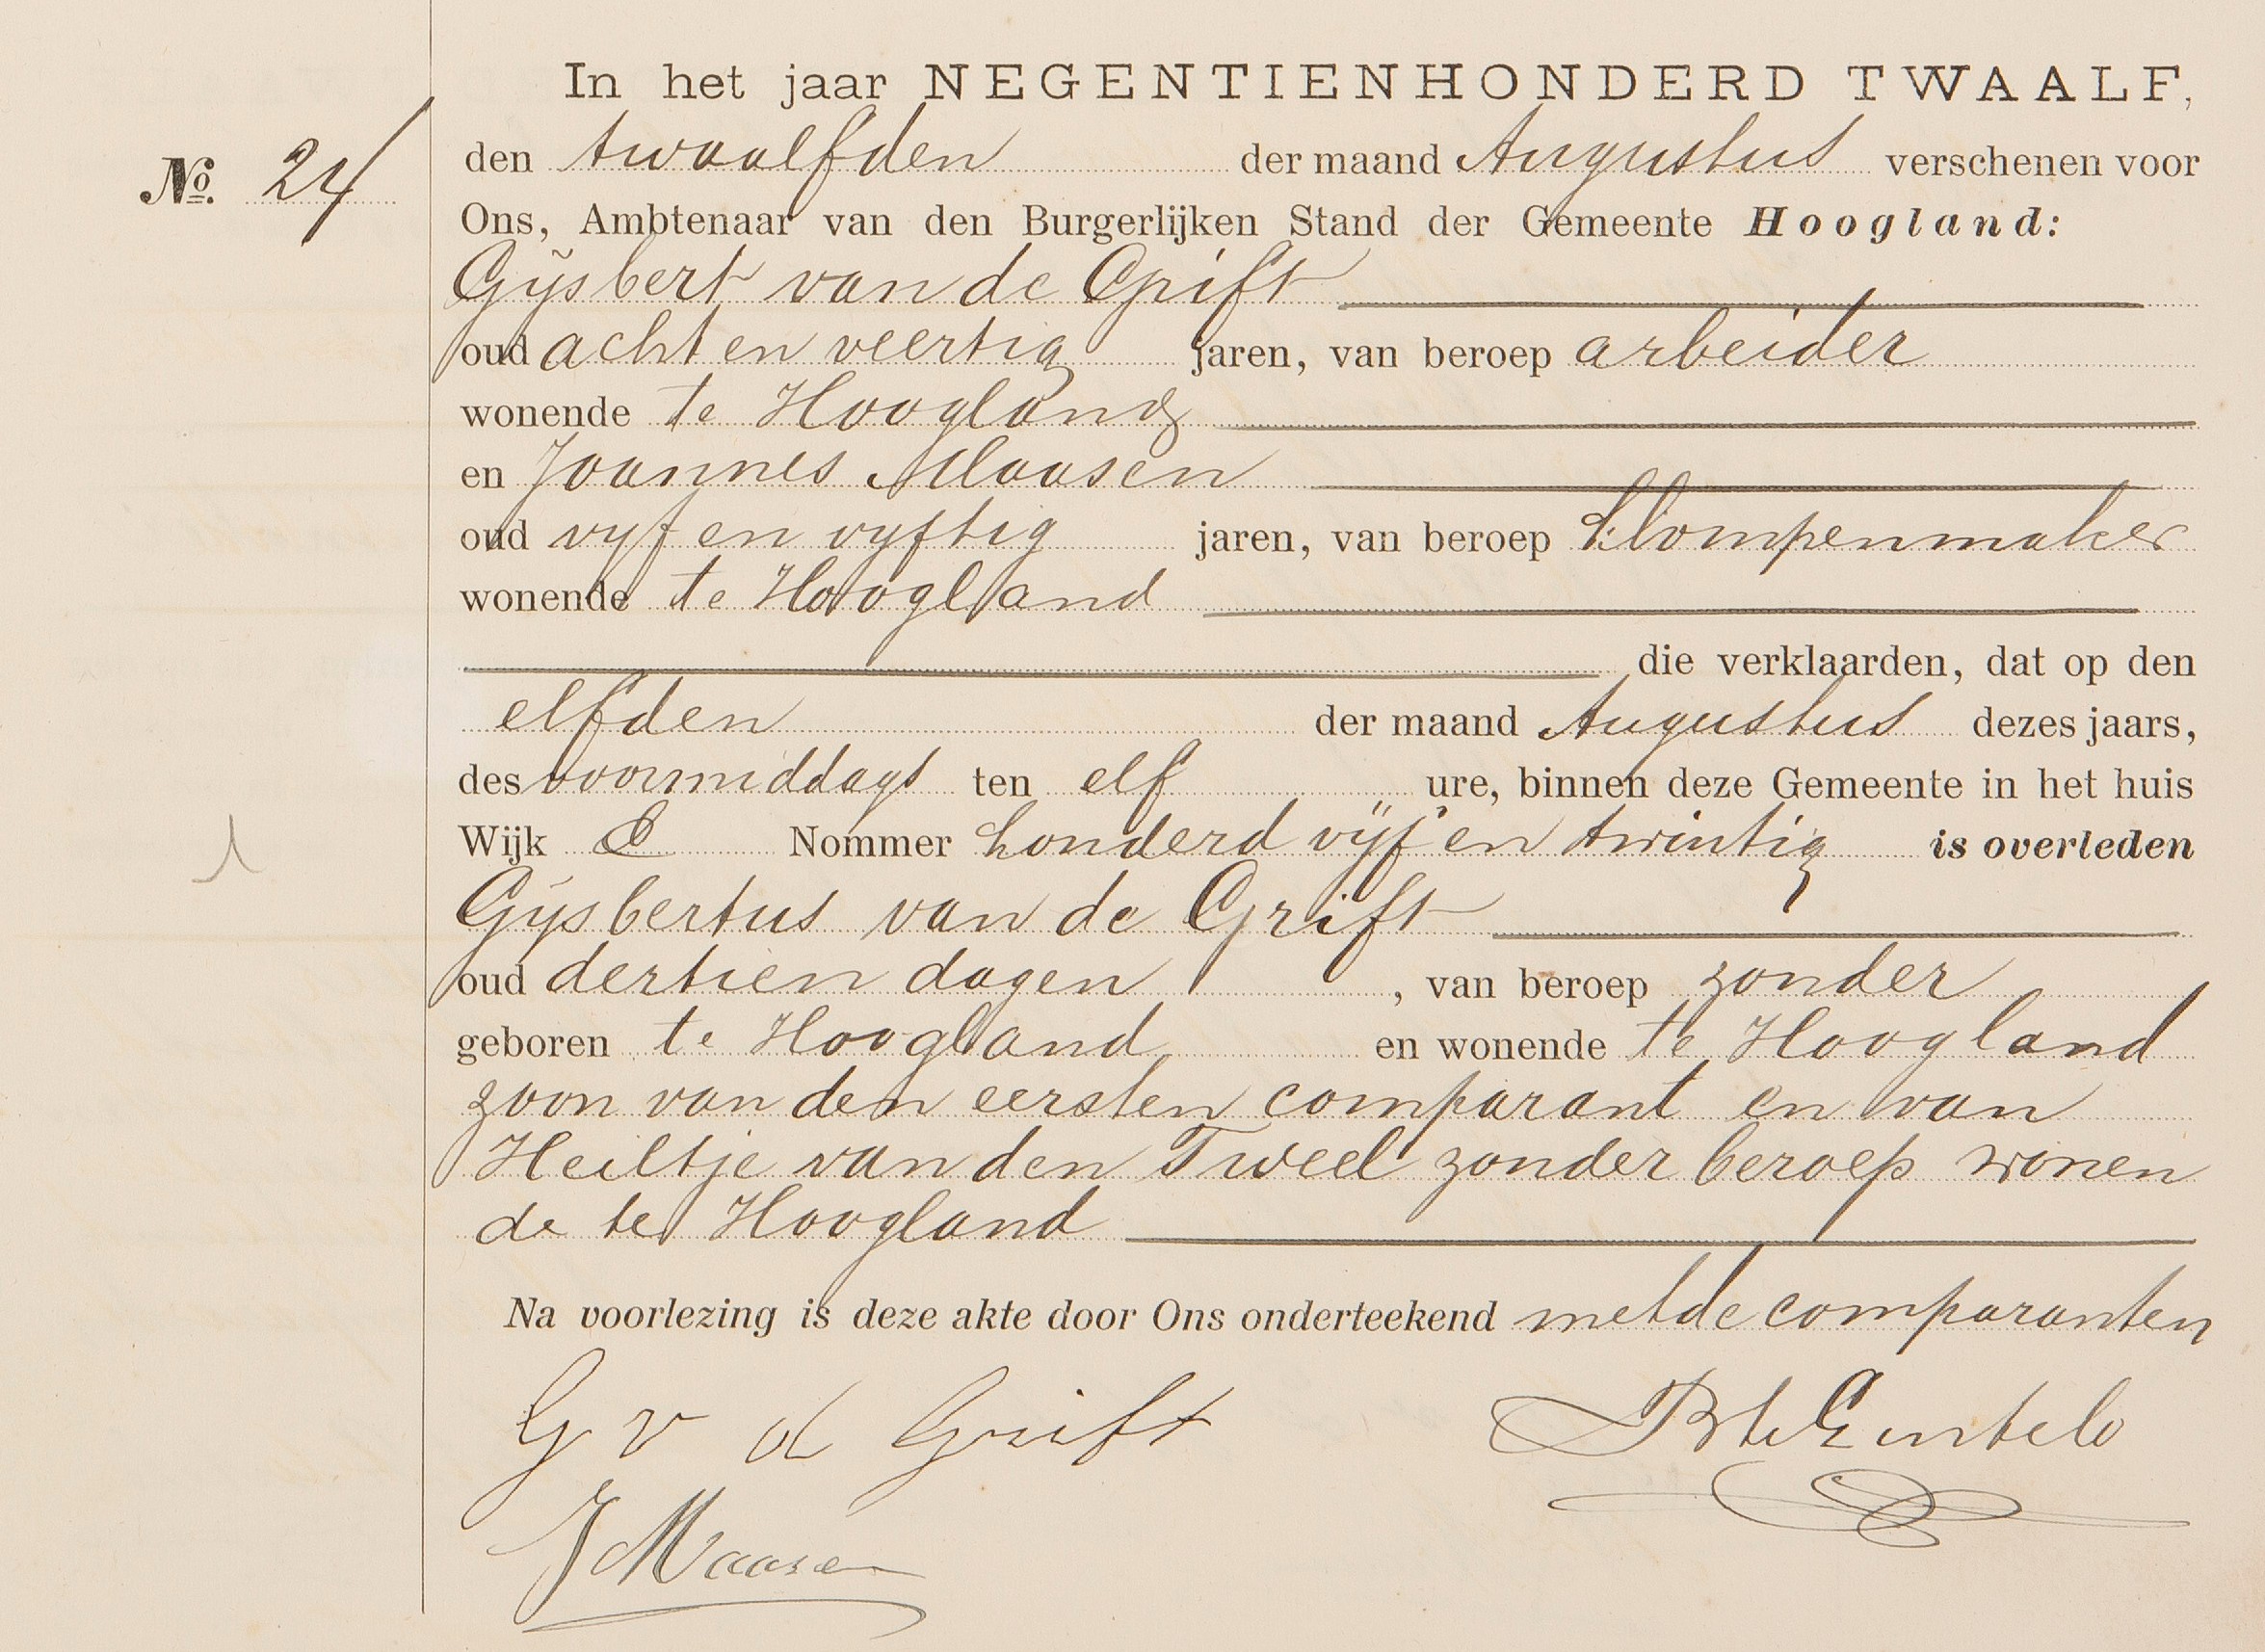 In het jaar NEGENTIENHONDERD TWAALF,
No. 24
den twaalfden der maand Augustus verschenen voor
Ons, Ambtenaar van den Burgerlijken Stand der Gemeente Hoogland:
Gijsbert van de Grift
oud acht en veertig jaren, van beroep arbeider
wonende te Hoogland
en Joannes Maasen
oud vyf en vyftig jaren, van beroep klompenmaker
wonende te Hoogland
die verklaarden, dat op den
elfden der maand Augustus dezes jaars,
des voormiddags ten elf ure, binnen deze Gemeente in het huis
Wijk Nommer honderd vijf en twintig is overleden
Gijsbertus van de Grift
oud dertien dagen, van beroep zonder
geboren te Hoogland en wonende te Hoogland
zoon van den eersten comparant en van
Heiltje van den Tweel zonder beroep wonen
de te Hoogland
Na voorlezing is deze akte door Ons onderteekend met de comparanten
G v d Grift
J Maasen